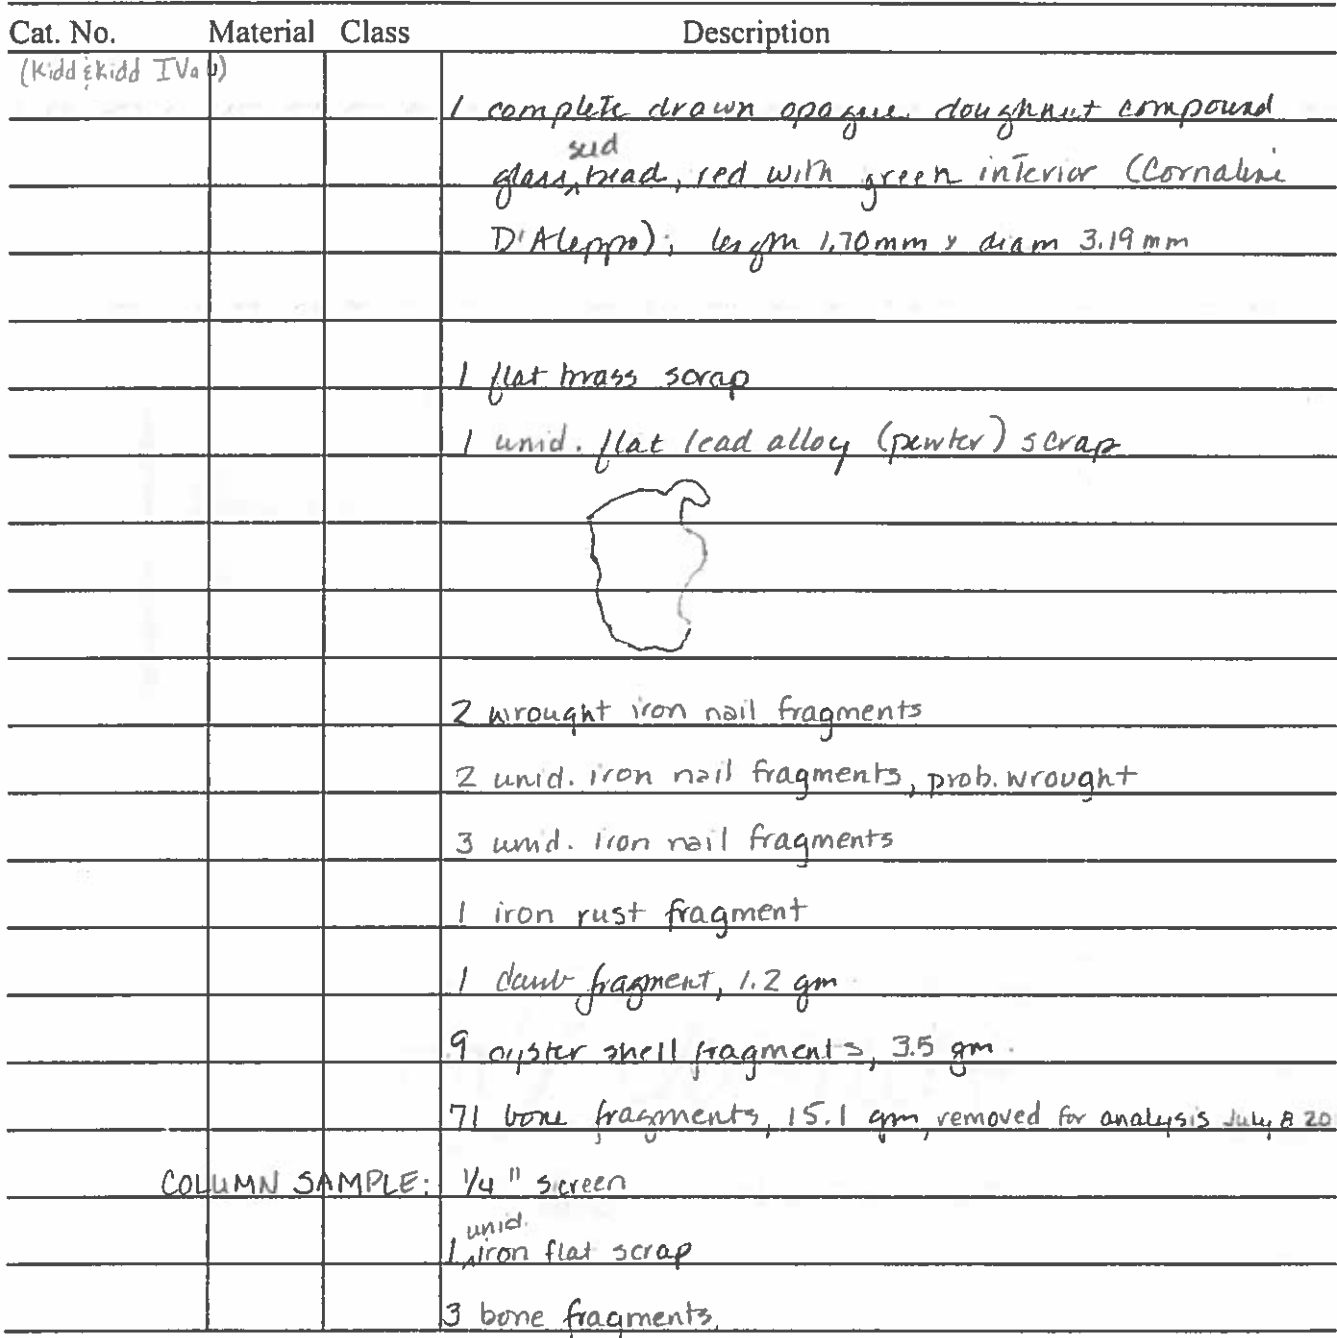 Cat. No. Material Class Description
(Kidd & Kidd IVa)
1 complete drawn opaque doughnut compound
glass seed bead, red with green interior (Cornaline
D'Aleppo); length 1.70mm x diam 3.19mm
1 flat brass scrap
1 unid. flat lead alloy (pewter) scrap
2 wrought iron nail fragments
2 unid. iron nail fragments, prob. wrought
3 unid. iron nail fragments
1 iron rust fragment
1 daub fragment, 1.2 gm
9 oyster shell fragments, 3.5 gm.
71 bone fragments, 15.1 gm, removed for analysis July 8 20
COLUMN SAMPLE: 1/4" screen
1 unid. iron flat scrap
3 bone fragments.